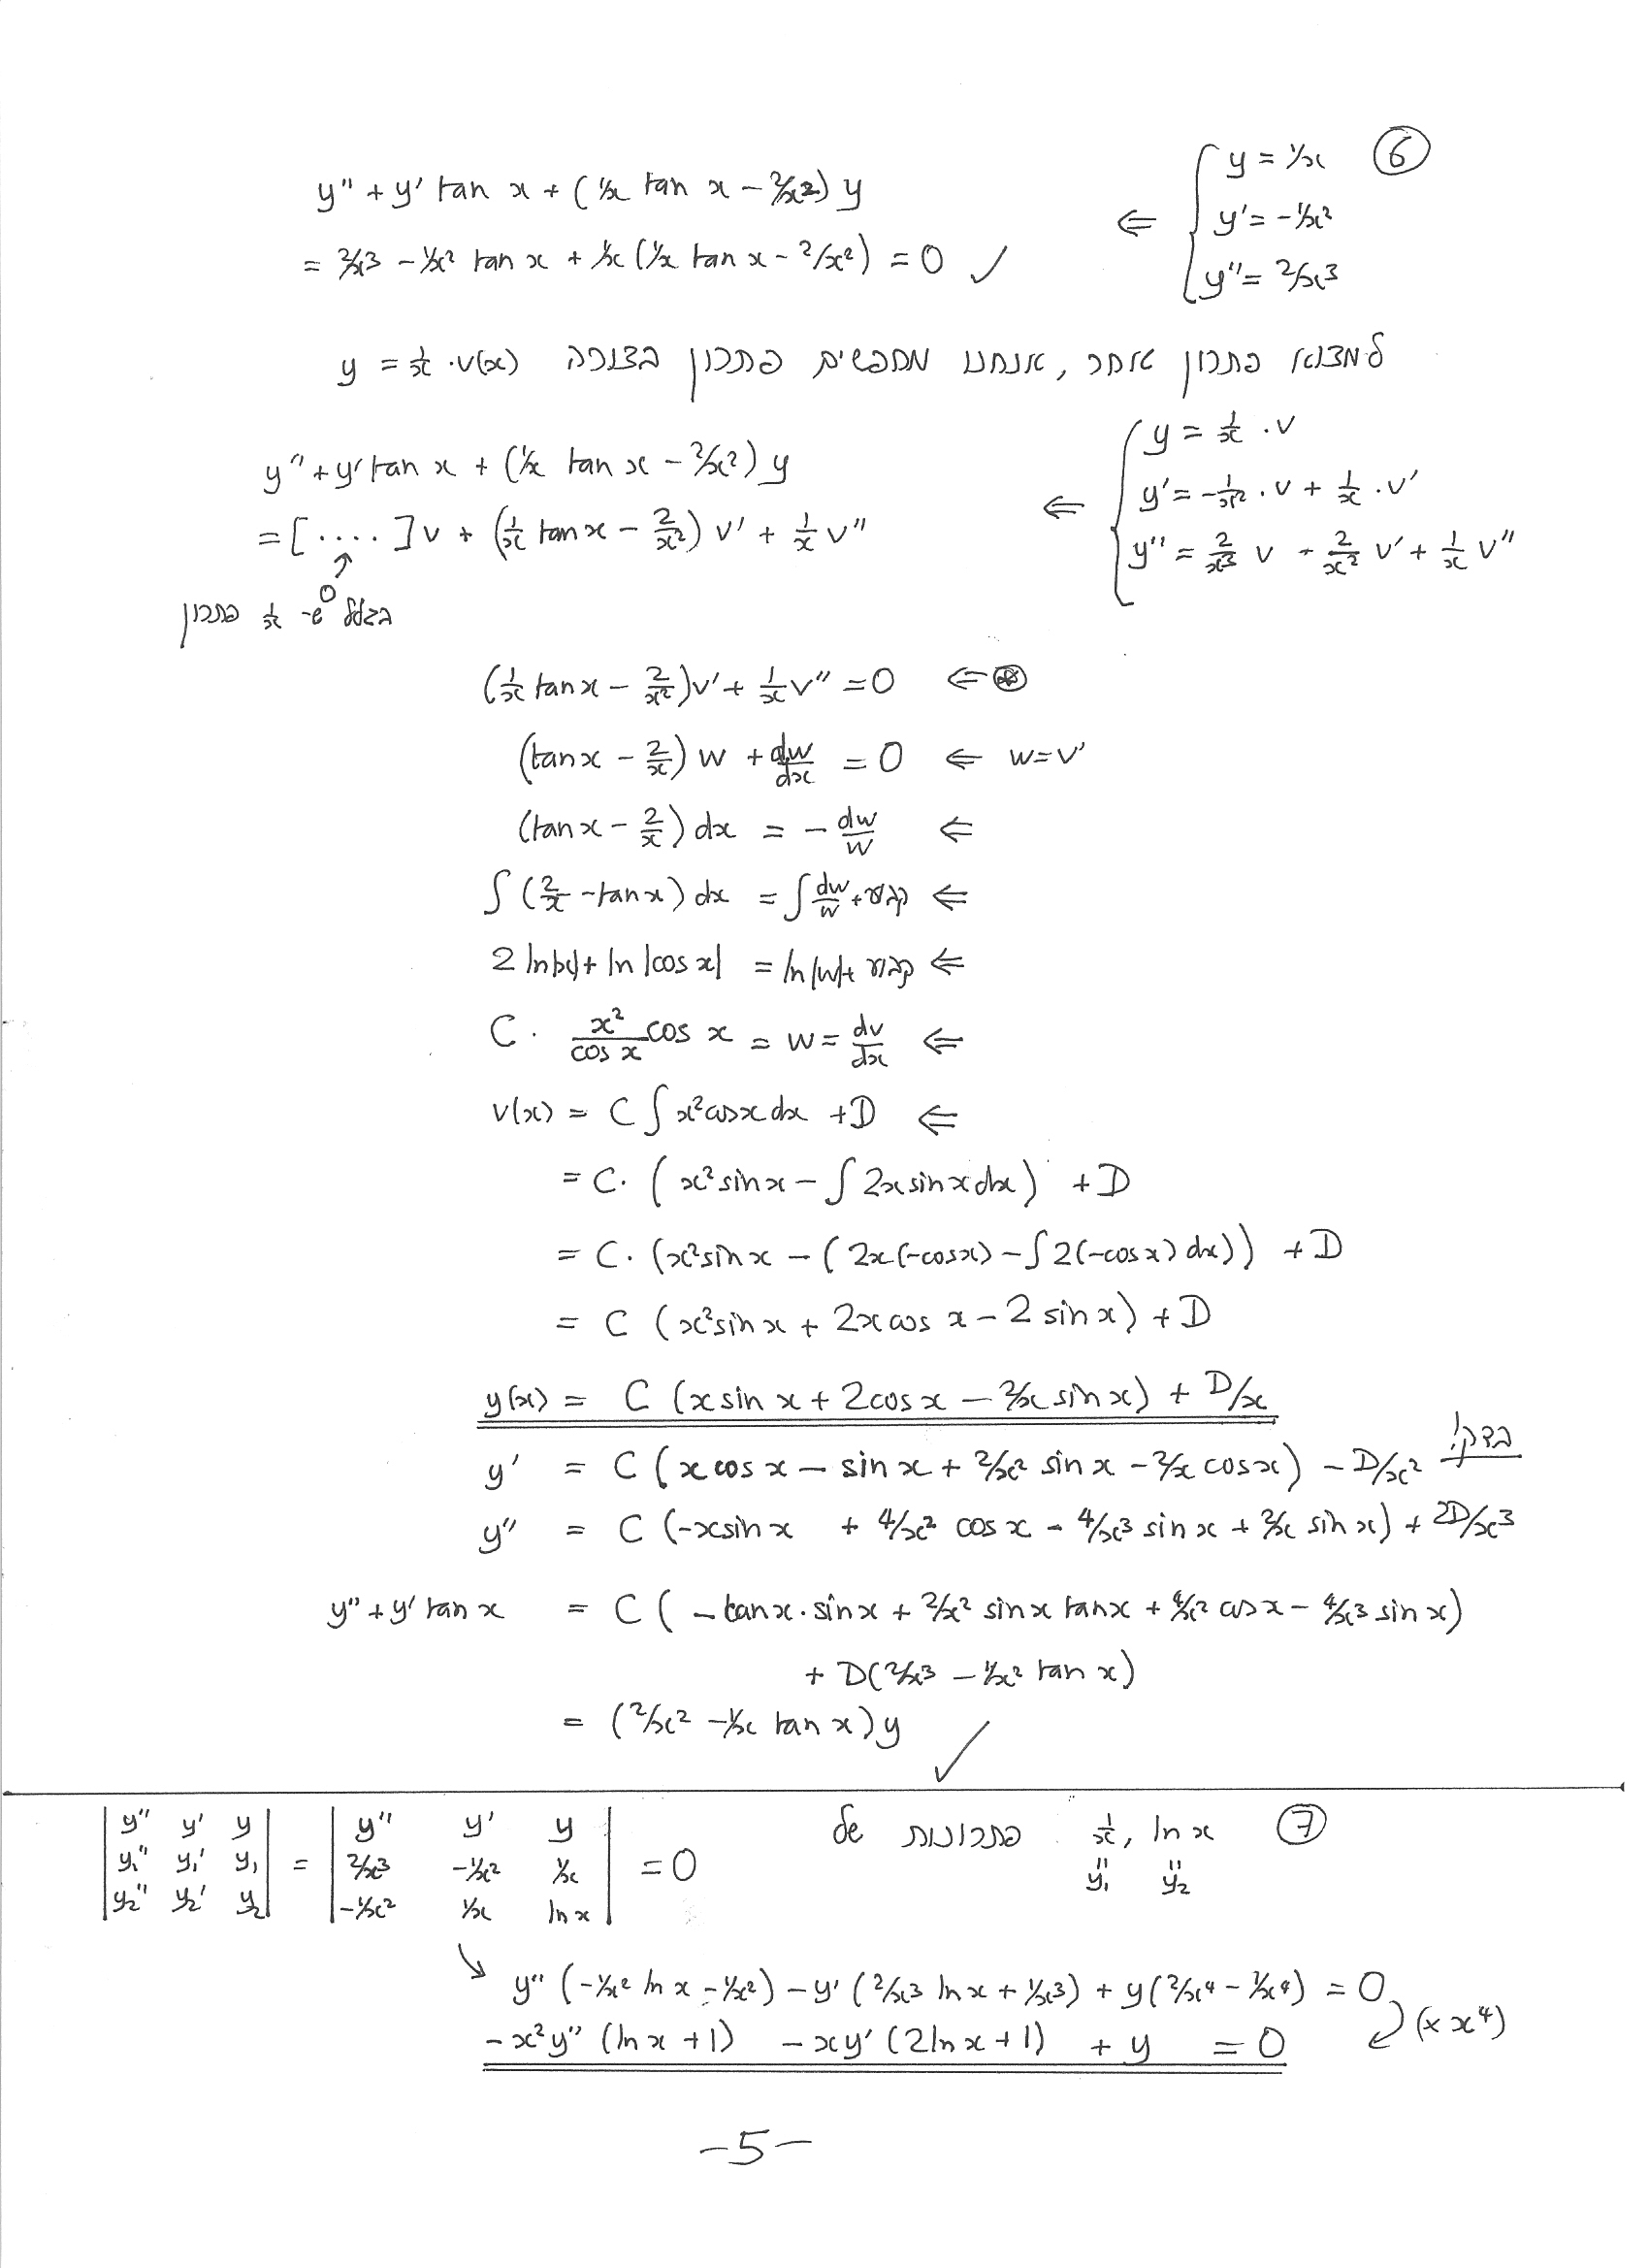 ⑥ { y = 1/x
y' = -1/x²
y'' = 2/x³ ⇐
y'' + y' tan x + (1/x tan x - 2/x²) y
= 2/x³ - 1/x² tan x + 1/x (1/x tan x - 2/x²) = 0 ✓
למצוא פתרון אחר, אנחנו מחפשים פתרון בצורה y = 1/x · v(x)
{ y = 1/x · v
y' = -1/x² · v + 1/x · v'
y'' = 2/x³ v - 2/x² v' + 1/x v'' ⇐
y'' + y' tan x + (1/x tan x - 2/x²) y
= [ .... ] v + (1/x tan x - 2/x²) v' + 1/x v''
↑
0
בגלל ש- 1/x פתרון
(1/x tan x - 2/x²) v' + 1/x v'' = 0 ⇐ ⊛
(tan x - 2/x) w + dw/dx = 0 ⇐ w = v'
(tan x - 2/x) dx = - dw/w ⇐
∫ (2/x - tan x) dx = ∫ dw/w + קבוע ⇐
2 ln|x| + ln|cos x| = ln|w| + קבוע ⇐
C · x²/cos x cos x = w = dv/dx ⇐
v(x) = C ∫ x² cos x dx + D ⇐
= C · (x² sin x - ∫ 2x sin x dx) + D
= C · (x² sin x - (2x(-cos x) - ∫ 2(-cos x) dx)) + D
= C (x² sin x + 2x cos x - 2 sin x) + D
y(x) = C (x sin x + 2 cos x - 2/x sin x) + D/x
בדקו!
y' = C (x cos x - sin x + 2/x² sin x - 2/x cos x) - D/x²
y'' = C (-x sin x + 4/x² cos x - 4/x³ sin x + 2/x sin x) + 2D/x³
y'' + y' tan x = C (- tan x · sin x + 2/x² sin x tan x + 4/x² cos x - 4/x³ sin x)
+ D(2/x³ - 1/x² tan x)
= (2/x² - 1/x tan x) y ✓
⑦ 1/x, ln x פתרונות של
y₁ y₂
| y'' y' y | = | y'' y' y | = 0
| y₁'' y₁' y₁ | | 2/x³ -1/x² 1/x |
| y₂'' y₂' y₂ | | -1/x² 1/x ln x |
↘ y'' (-1/x² ln x - 1/x²) - y' (2/x³ ln x + 1/x³) + y (2/x⁴ - 1/x⁴) = 0
(× x⁴)
-x² y'' (ln x + 1) - x y' (2 ln x + 1) + y = 0
-5-